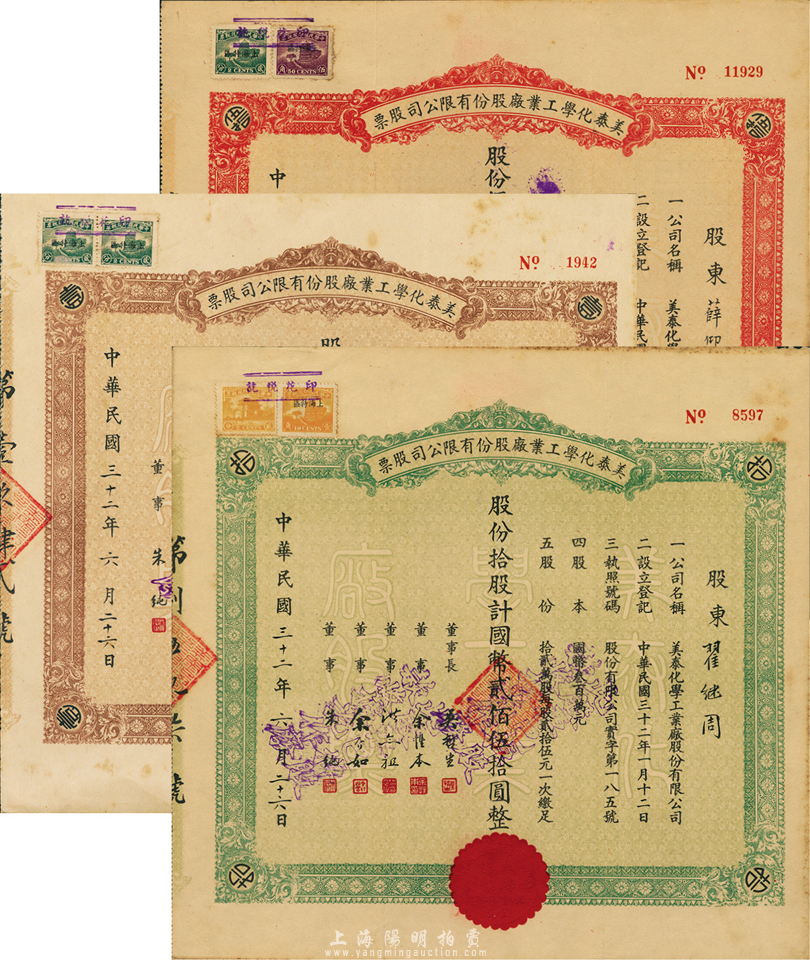 印花稅訖
2 CENTS
50 CENTS
Nº 11929
美泰化學工業廠股份有限公司股票
股東 薛
一公司名稱 美泰化學
二設立登記 中華民國
股份
中
印花稅訖
Nº 1942
美泰化學工業廠股份有限公司股票
中華民國三十二年六月二十六日
董事 朱
印花稅訖
上海特區
10 CENTS
Nº 8597
美泰化學工業廠股份有限公司股票
股東 翟繼周
一公司名稱 美泰化學工業廠股份有限公司
二設立登記 中華民國三十二年一月十二日
三執照號碼 股份有限公司實字第一八五號
四股本 國幣叁百萬元
五股份 拾貳萬股每股貳拾伍元一次繳足
股份拾股計國幣貳佰伍拾圓整
董事長
董事
董事
董事
董事 朱
中華民國三十二年六月二十六日
上海陽明拍賣
www.yangmingauction.com